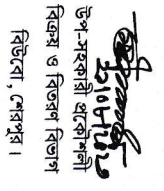 উপ-সহকারী প্রকৌশলী
বিক্রয় ও বিতরণ বিভাগ
বিউবো, শেরপুর।